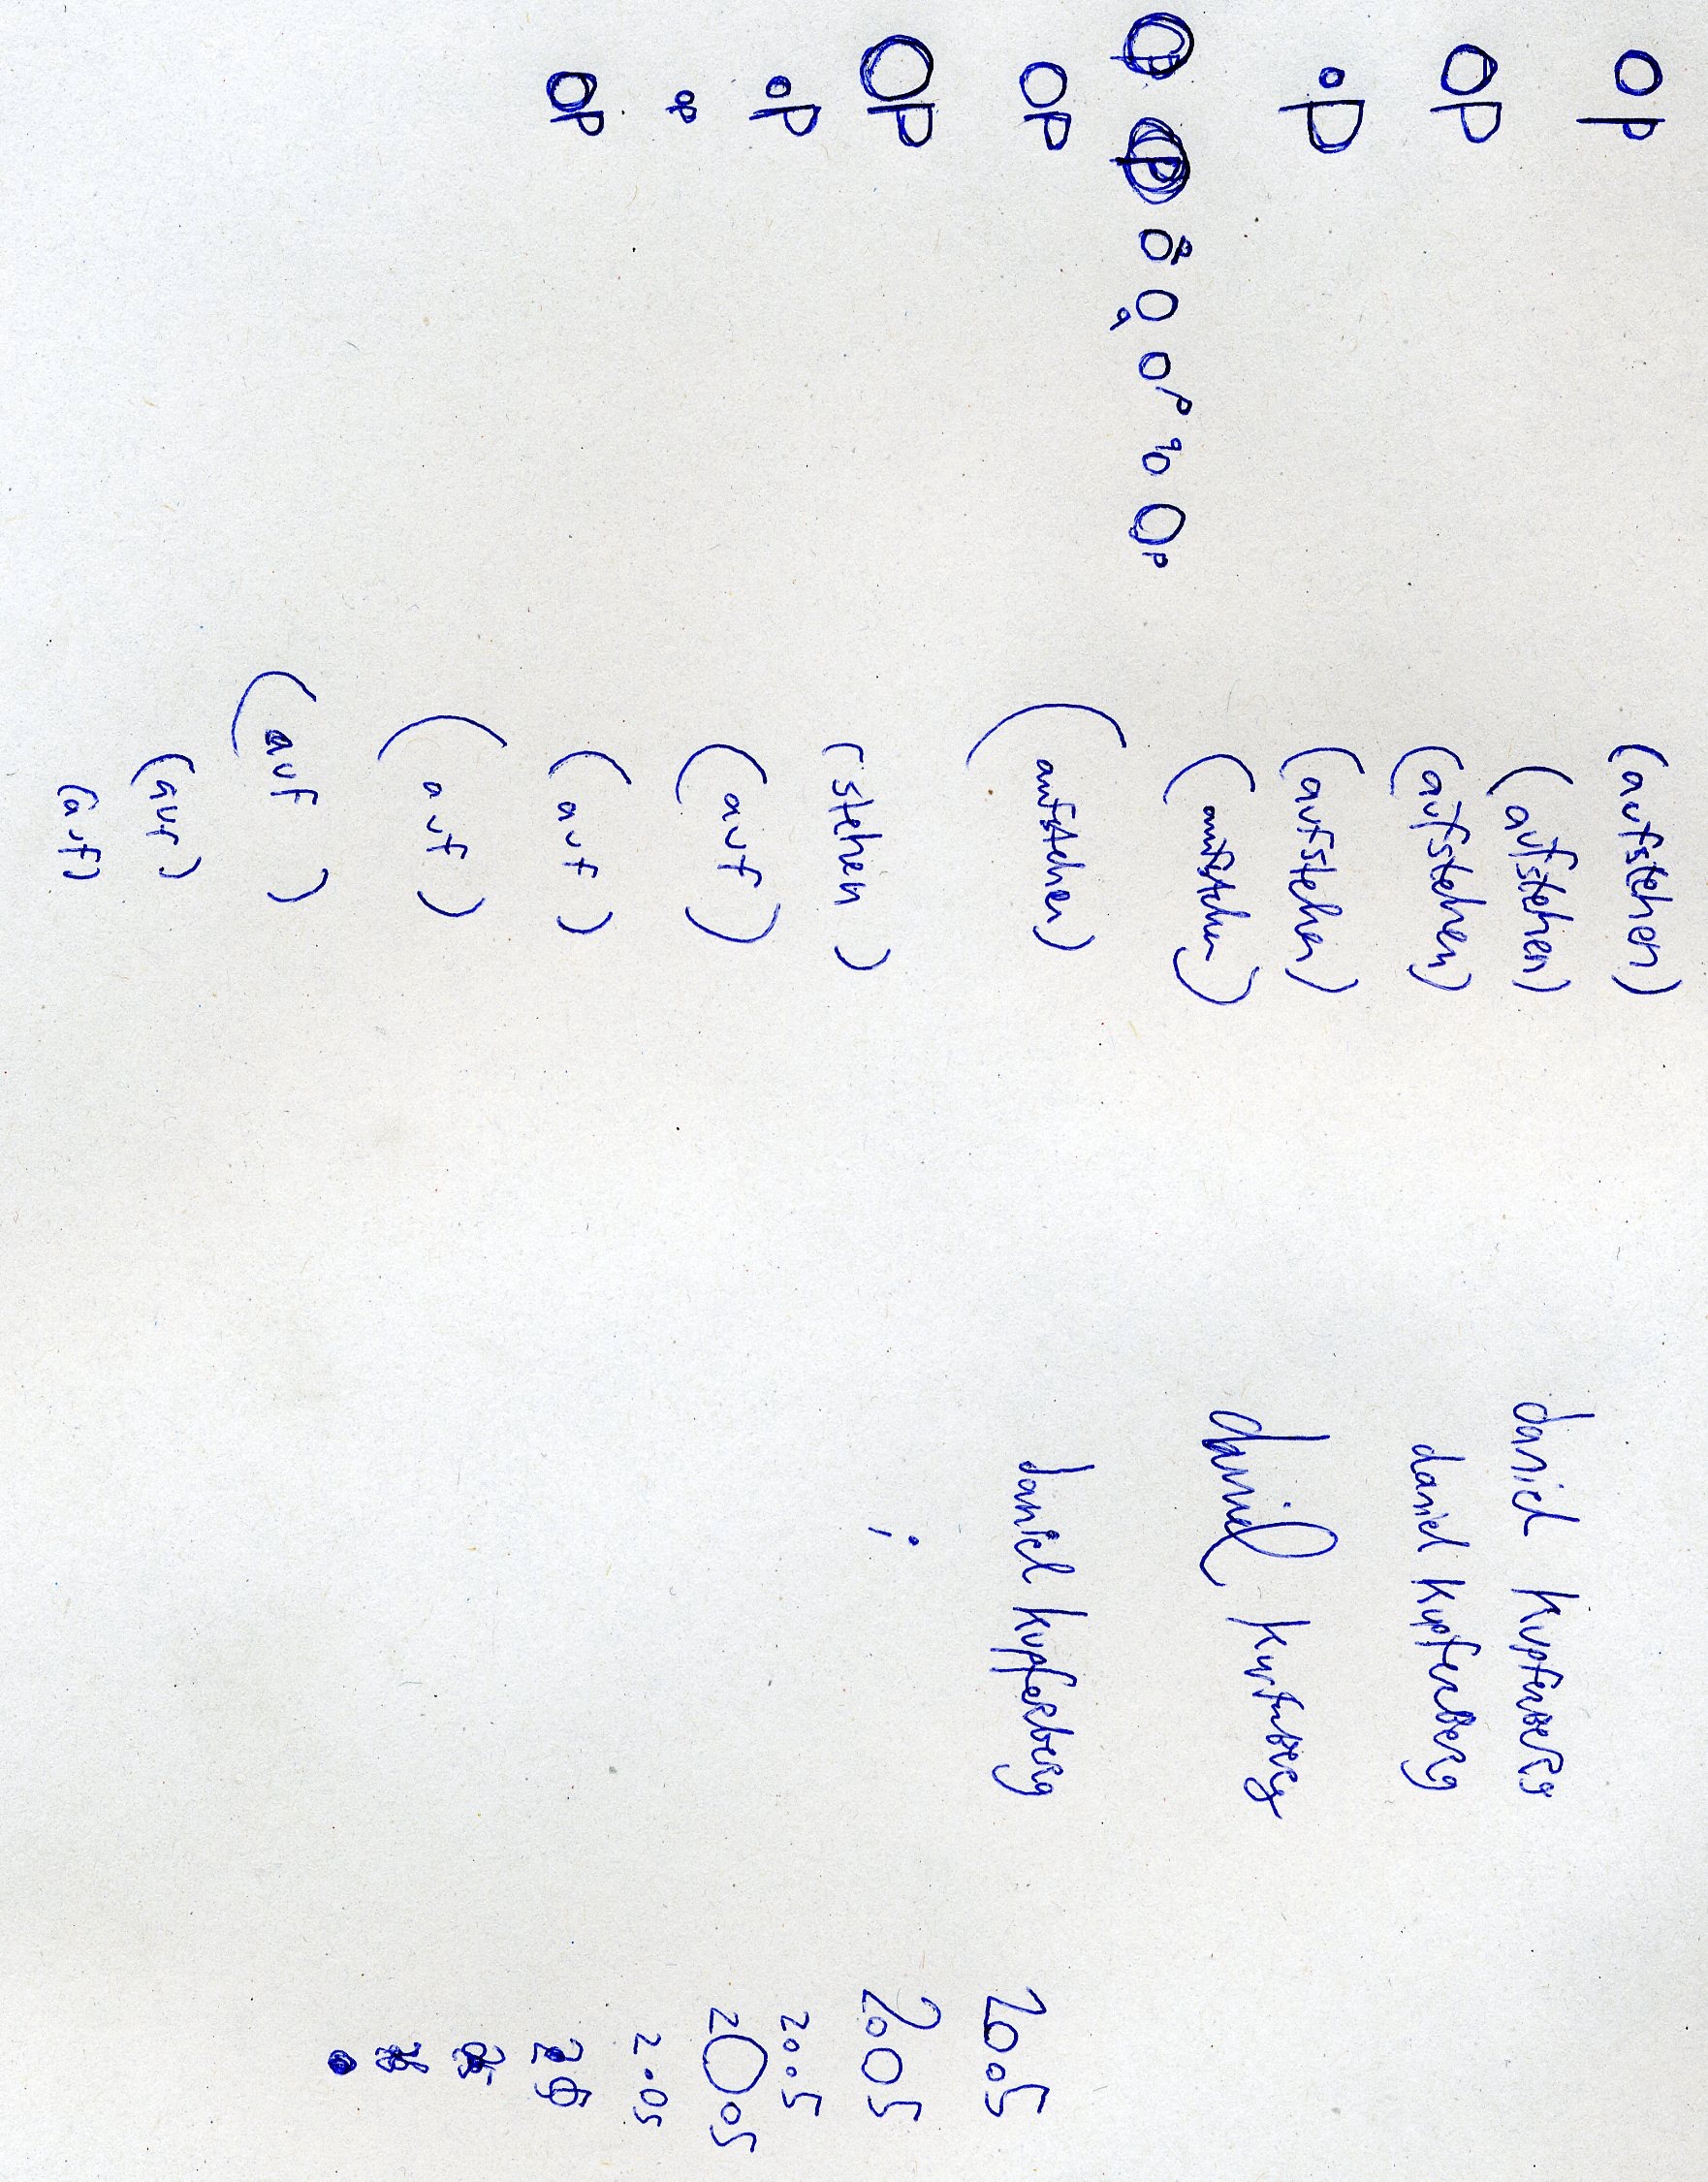 OP
OP
OP
OP OP OP OP OP PO OP
OP
OP
OP
OP
OP
(aufstehen)
(aufstehen)
(aufstehen)
(aufstehen)
(aufstehen)
(aufstehen)
(stehen)
(auf)
(auf)
(auf)
(auf)
(auf)
(auf)
daniel kupferberg
daniel kupferberg
daniel kupferberg
daniel kupferberg
i
2005
2005
2005
2005
2005